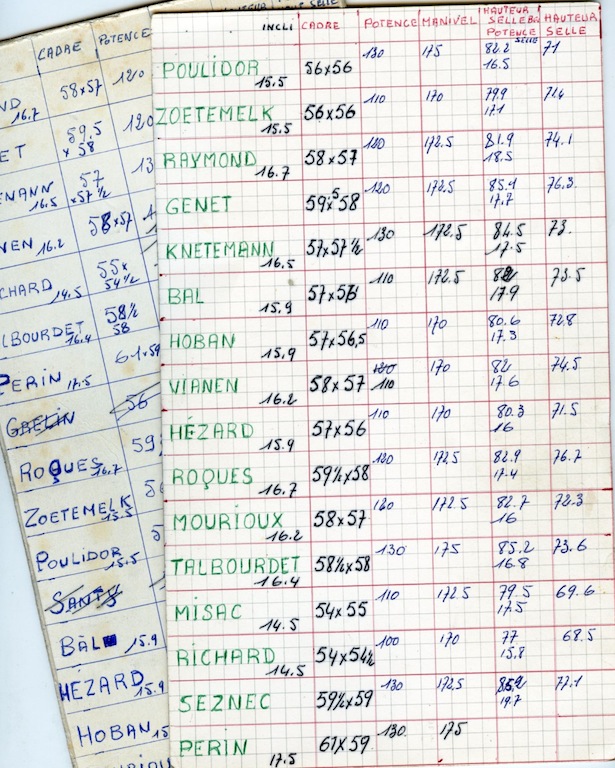 INCLI CADRE POTENCE MANIVEL HAUTEUR SELLE Bas POTENCE SELLE HAUTEUR SELLE
POULIDOR 15.5 56x56 130 175 82.2 16.5 71
ZOETEMELK 15.5 56x56 110 170 79.9 17.1
RAYMOND 16.7 58x57 120 172.5 81.9 18.5 74.1
GENET 59x58 5 120 172.5 85.1 17.7 76.3
KNETEMANN 16.5 57x57½ 130 172.5 84.5 17.5 73.
BAL 15.9 110 172.5 17.9 73.5
HOBAN 15.9 57x56,5 110 170 80.6 17.3 72.8
VIANEN 16.2 58x57 120 110 170 82 17.6 74.5
HÉZARD 15.9 57x56 110 170 80.3 16 71.5
ROQUES 16.7 59½x58 120 172.5 82.9 17.4 76.7
MOURIOUX 16.2 58x57 120 172.5 82.7 16 72.3
TALBOURDET 16.4 58½x58 130 175 85.2 16.8 73.6
MISAC 14.5 54x55 110 172.5 79.5 17.5 69.6
RICHARD 14.5 54x54½ 100 170 77 15.8 68.5
SEZNEC 59½x59 130 172.5 19.7 77.1
PERIN 17.5 61x59 130 175
CADRE POTENCE
ND 16.7 58x57 120
ET 59,5 x 58 120
ENANN 16.5 57 x57½ 13
NEN 16.2 58x57
CHARD 14.5 55x 54½
LBOURDET 16.4 58½ 58
PERIN 17.5 61x59
GAELIN 56
ROQUES 16.7 59
ZOETEMELK 15.5
POULIDOR 15.5 5
SANTY
BAL 15.9
HÉZARD 15.9
HOBAN 15